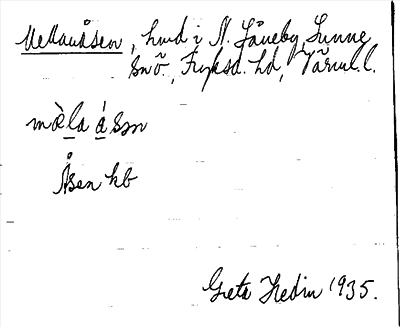 Mellanåsen, hmd i N. Låneby, Sunne
sn, Fryksd. hd, Värml. l.
mὲla ásm
Åsen kb
Greta Hedin 1935.